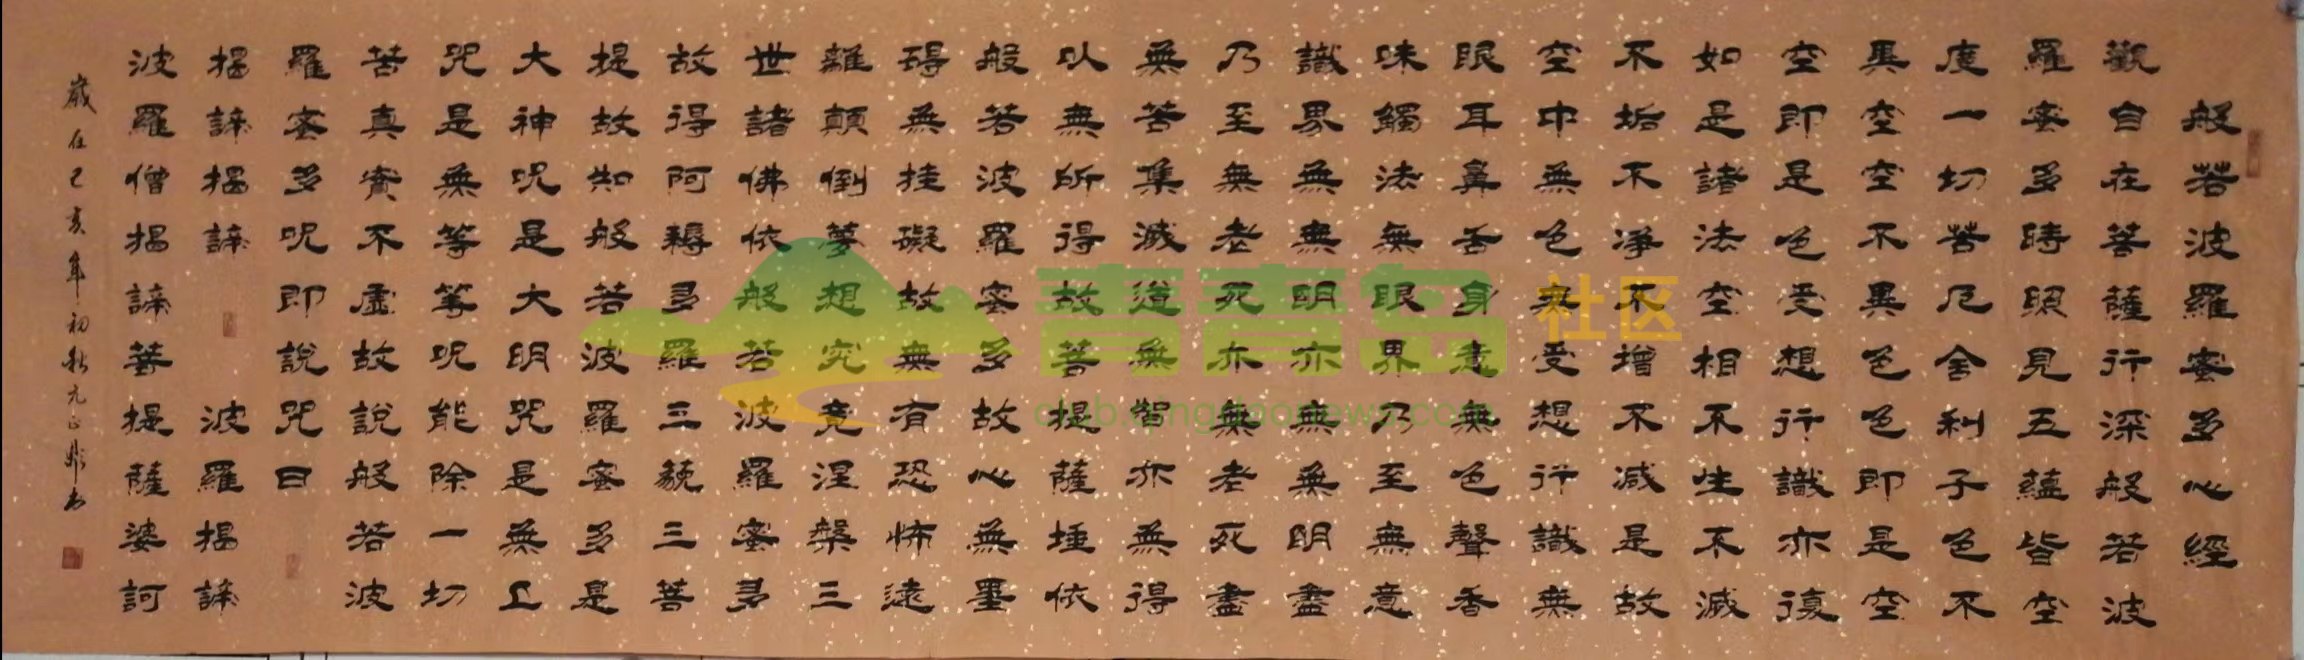 般若波羅蜜多心經
觀自在菩薩行深般若波
羅蜜多時照見五蘊皆空
度一切苦厄舍利子色不
異空空不異色色即是空
空即是色受想行識亦復
如是諸法空相不生不滅
不垢不淨不增不减是故
空中無色無受想行識無
眼耳鼻舌身意無色聲香
味觸法無眼界乃至無意
識界無無明亦無無明盡
乃至無老死亦無老死盡
無苦集滅道無智亦無得
以無所得故菩提薩埵依
般若波羅蜜多故心無罣
碍無挂礙故無有恐怖遠
離顛倒夢想究竟涅槃三
世諸佛依般若波羅蜜多
故得阿耨多羅三藐三菩
提故知般若波羅蜜多是
大神呪是大明咒是無上
咒是無等等呪能除一切
苦真實不虛故說般若波
羅蜜多呪即說咒曰
揭諦揭諦 波羅揭諦
波羅僧揭諦菩提薩婆訶
歲在己亥年初秋元正
青青岛社区
club.qingdaonews.com